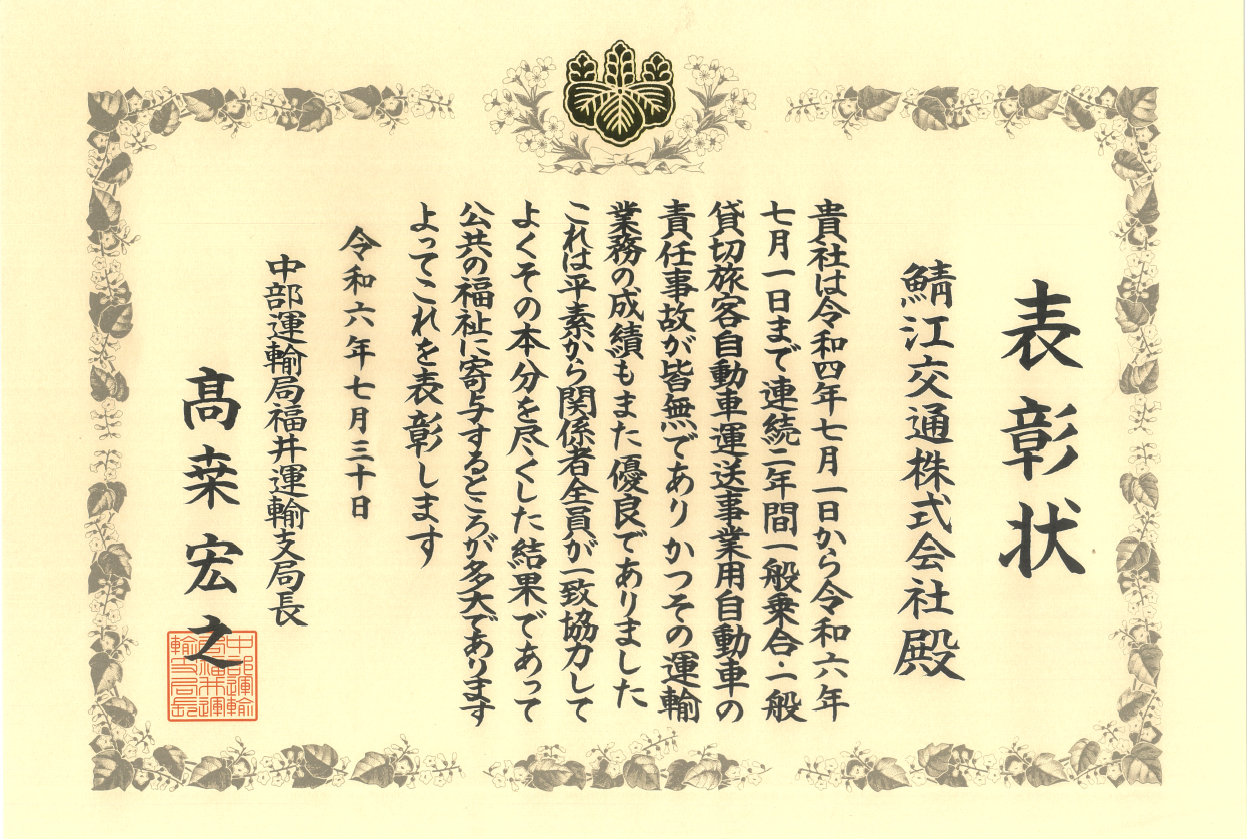 表彰状
鯖江交通株式会社殿
貴社は令和四年七月一日から令和六年
七月一日まで連続二年間一般乗合・一般
貸切旅客自動車運送事業用自動車の
責任事故が皆無でありかつその運輸
業務の成績もまた優良でありました
これは平素から関係者全員が一致協力して
よくその本分を尽くした結果であって
公共の福祉に寄与するところが多大であります
よってこれを表彰します
令和六年七月三十日
中部運輸局福井運輸支局長
髙桒宏之
中部運輸
局福井運
輸支局長